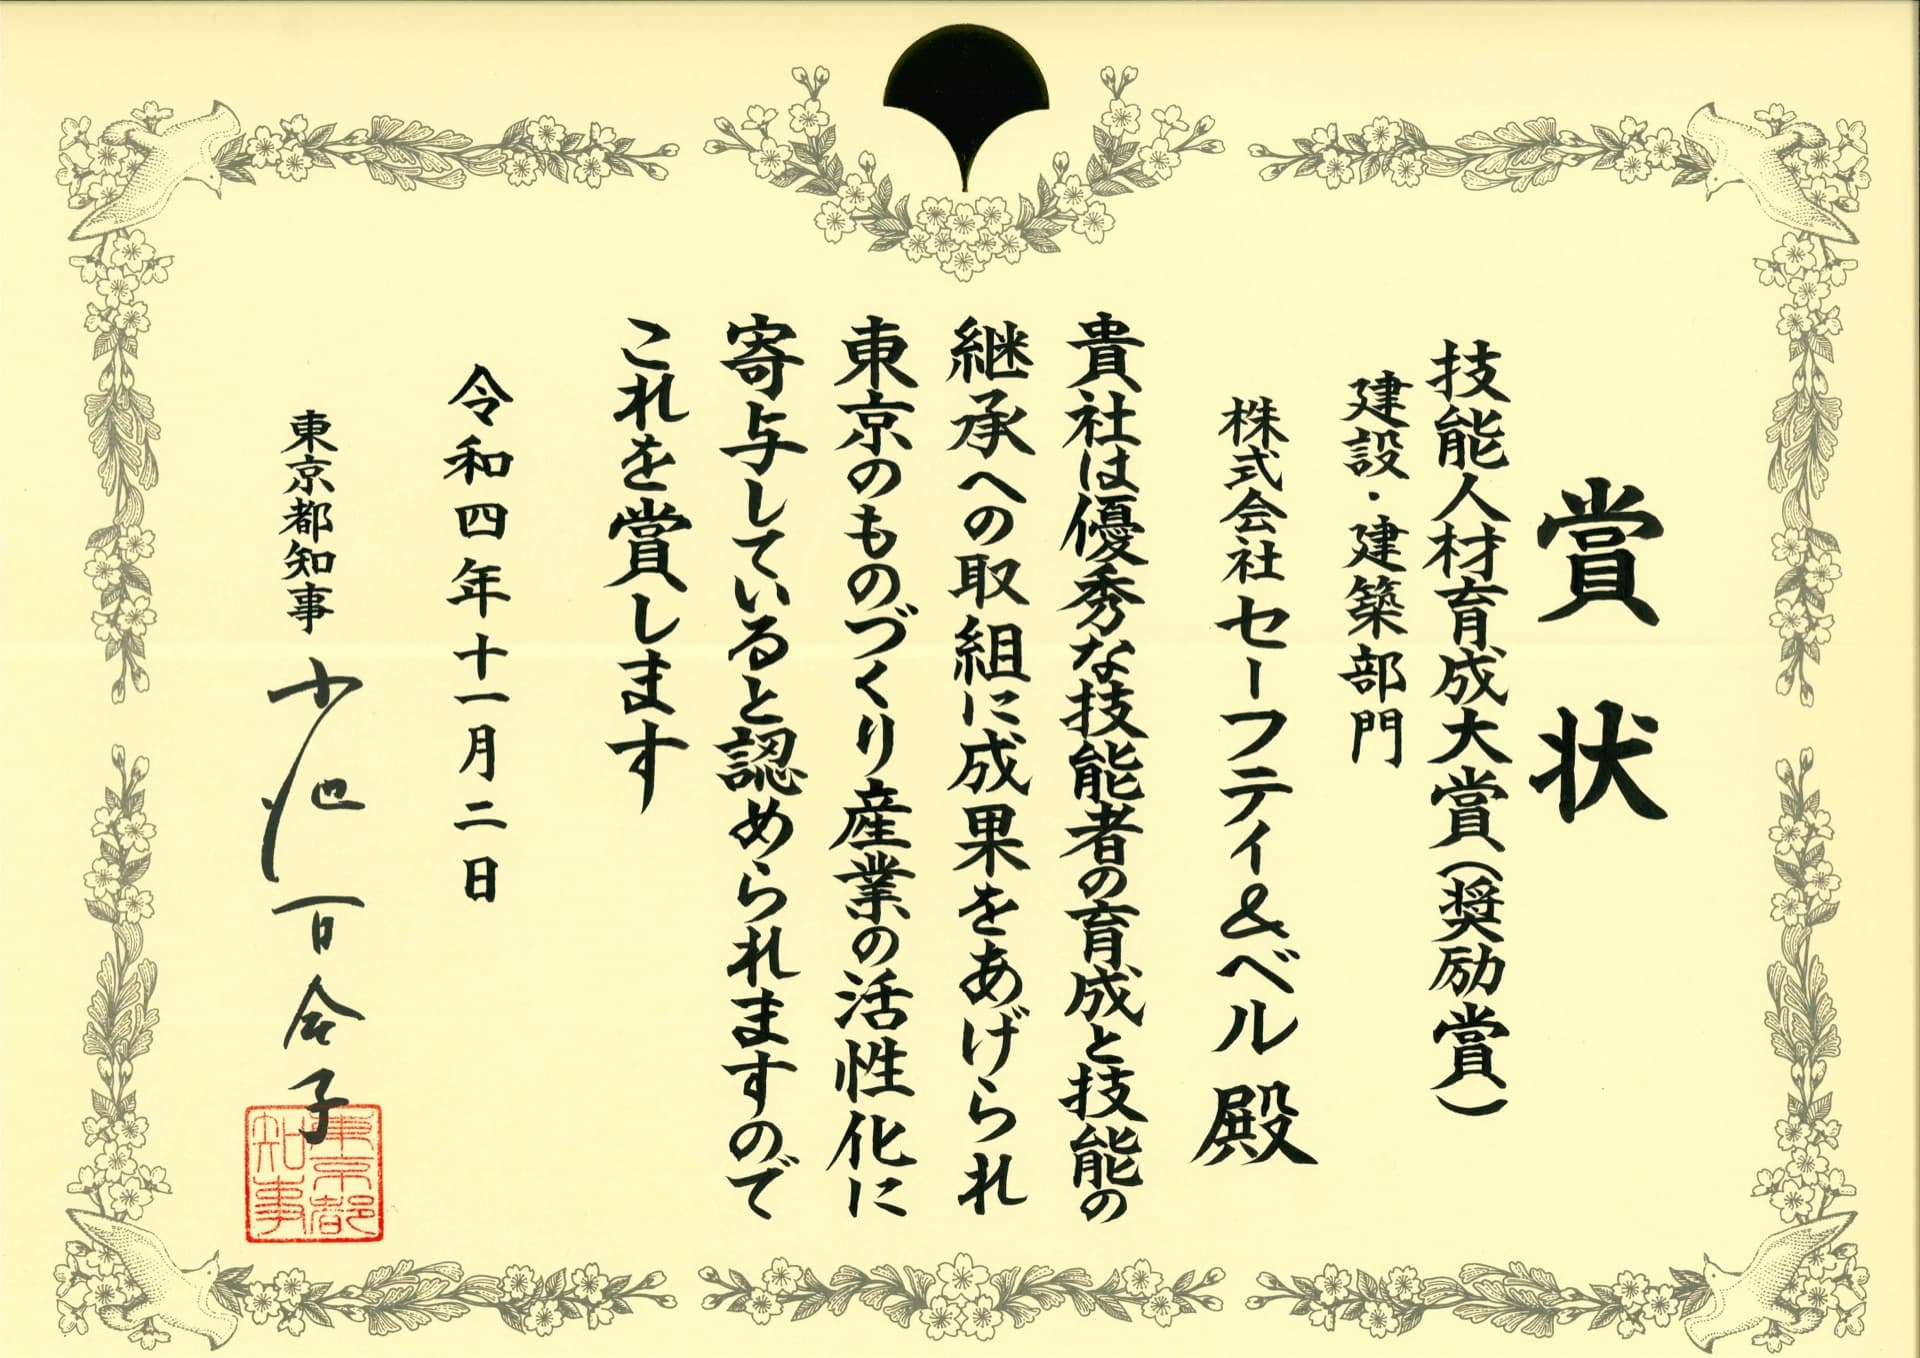 賞状
技能人材育成大賞（奨励賞）
建設・建築部門
株式会社セーフティ＆ベル 殿
貴社は優秀な技能者の育成と技能の
継承への取組に成果をあげられ
東京のものづくり産業の活性化に
寄与していると認められますので
これを賞します
令和四年十一月二日
東京都知事 小池百合子
東京都
知事